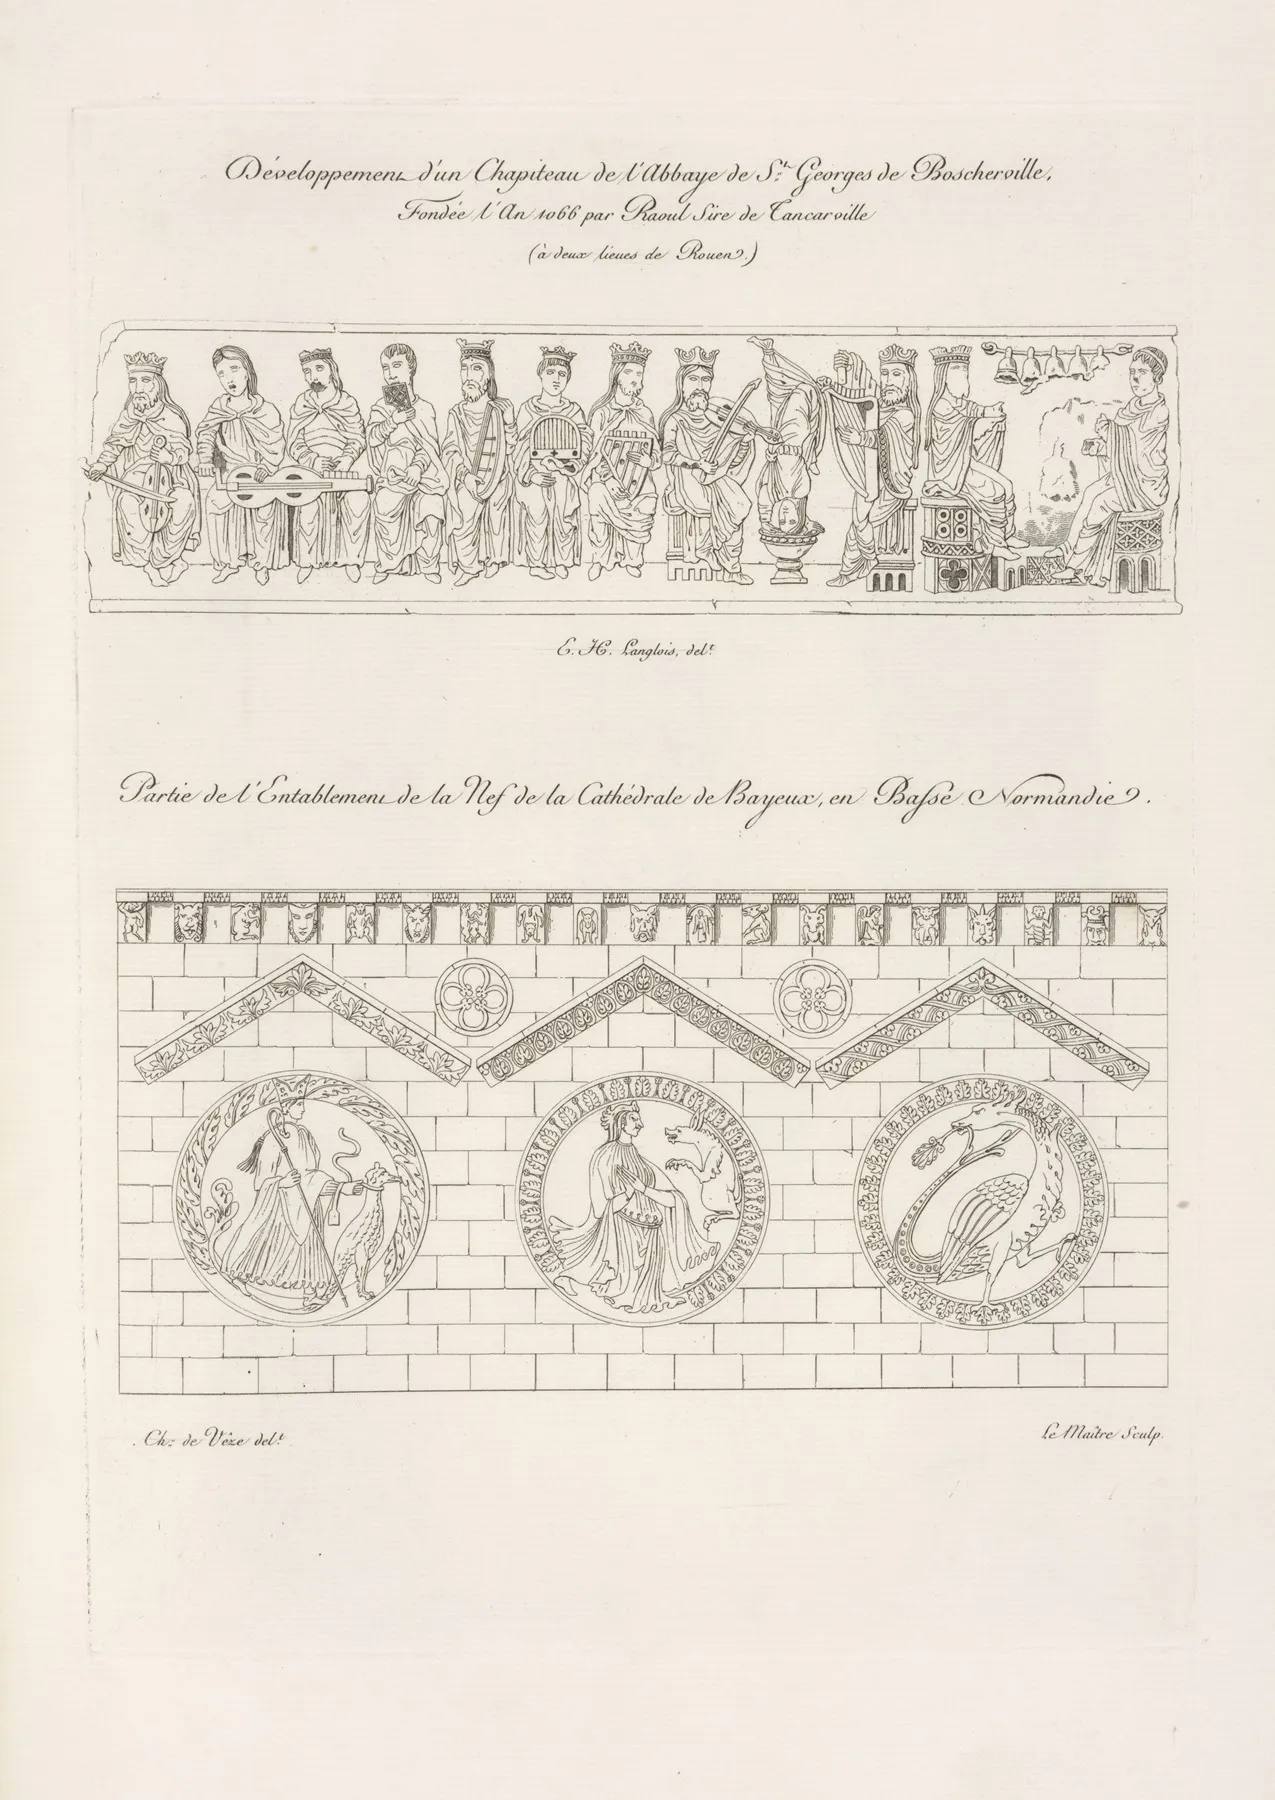 Développement d'un Chapiteau de l'Abbaye de St. Georges de Boscherville,
Fondée l'An 1066 par Raoul Sire de Tancarville
(à deux lieues de Rouen.)
E. H. Langlois, delt.
Partie de l'Entablement de la Nef de la Cathédrale de Bayeux, en Basse Normandie.
Ch: de Vêze delt.
Le Maître Sculp.